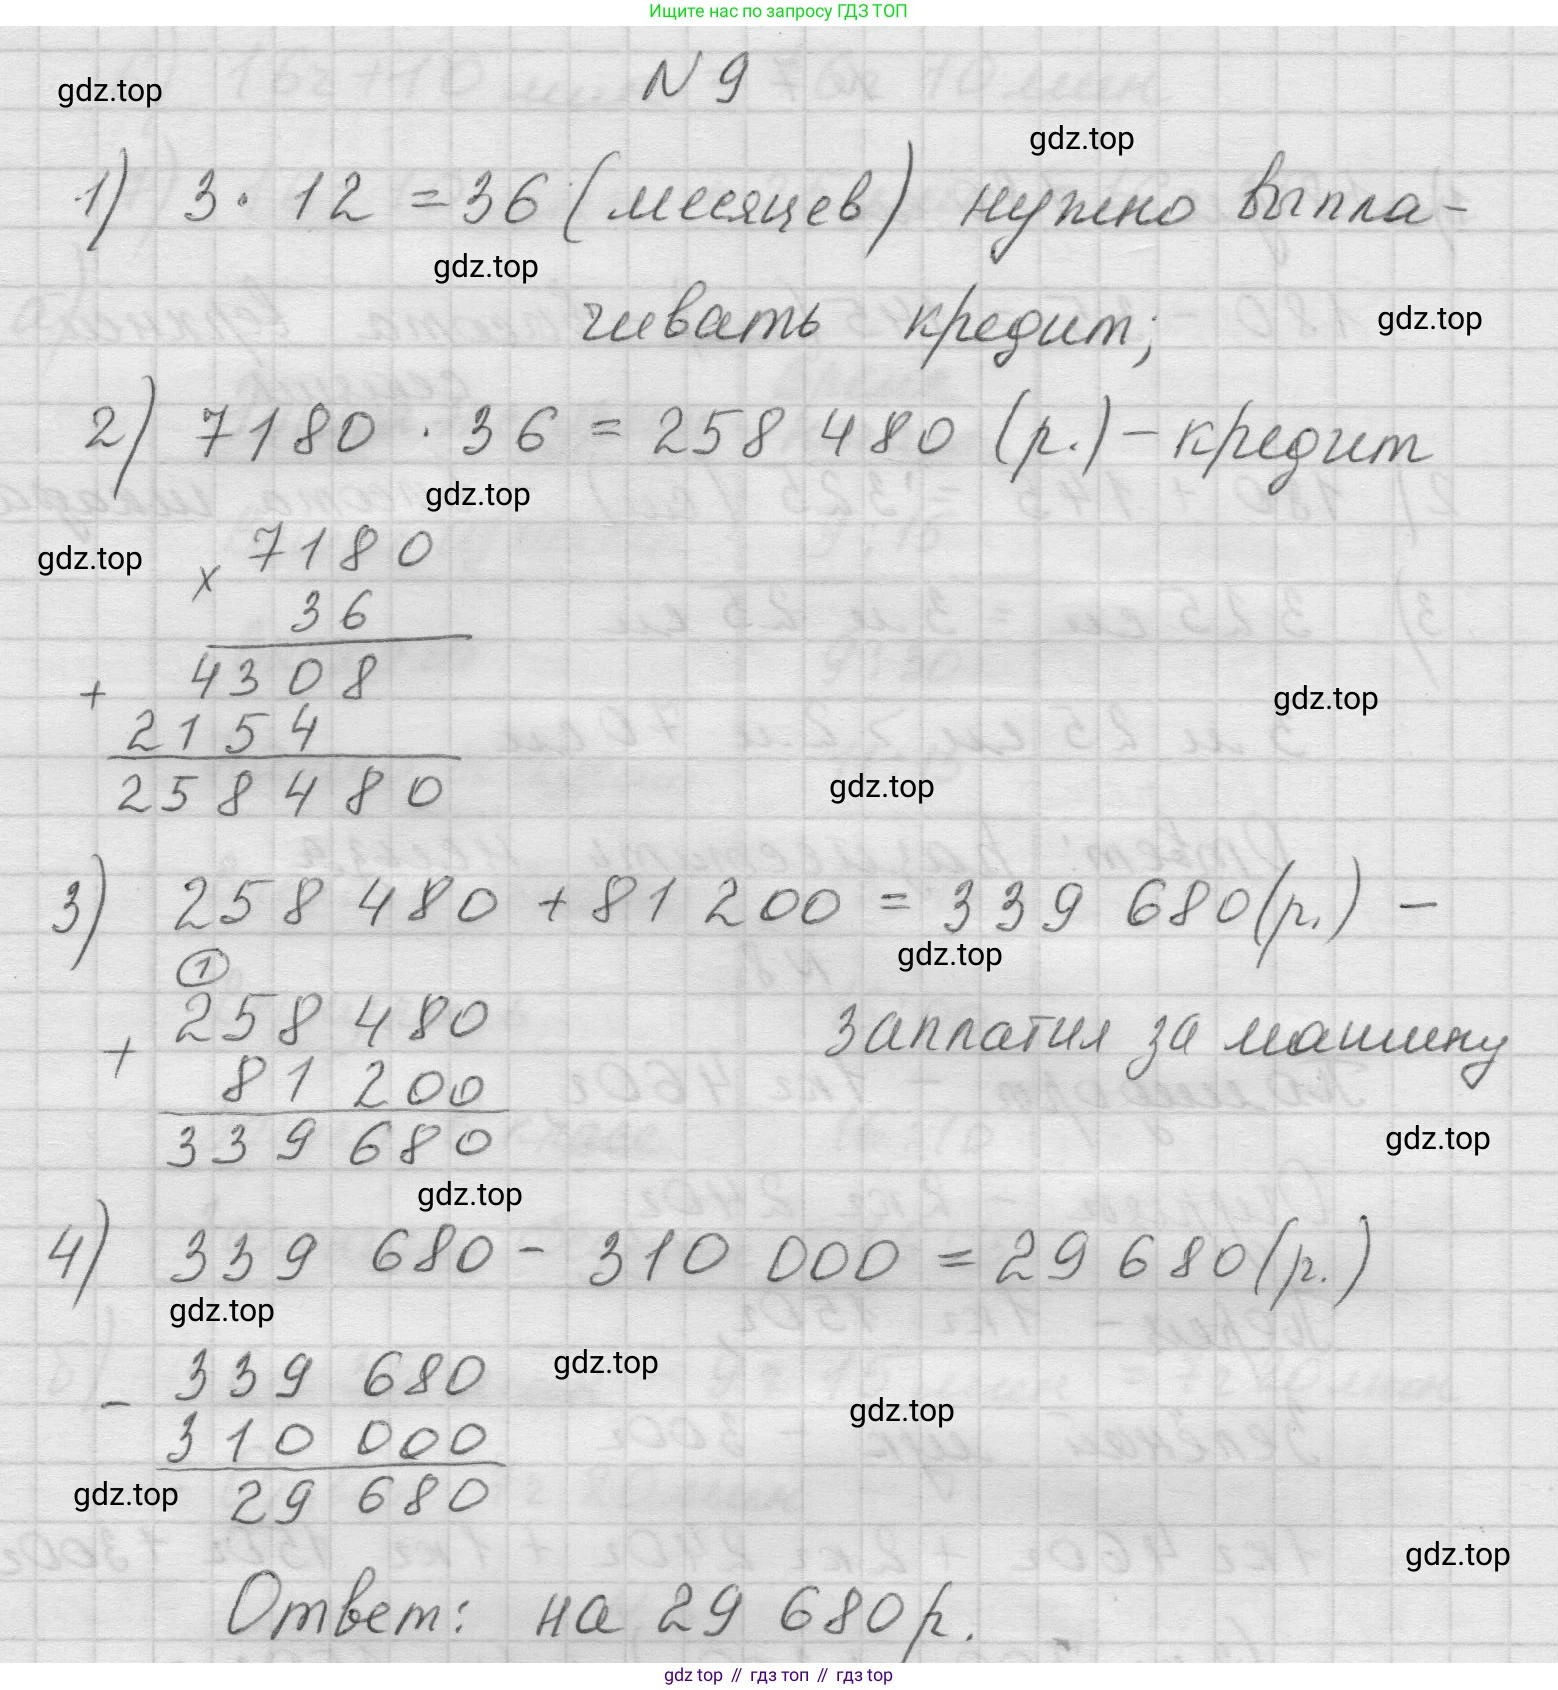 Ищите нас по запросу ГДЗ ТОП
N 9
gdz.top
gdz.top
1) 3 · 12 = 36 (месяцев) нужно выпла-
gdz.top
чивать кредит;
gdz.top
2) 7180 · 36 = 258 480 (р.) – кредит
gdz.top
gdz.top
× 7180
36
+ 4308
2154
258480
gdz.top
gdz.top
3) 258 480 + 81 200 = 339 680 (р.) –
gdz.top
1
заплатил за машину
+ 258 480
81 200
339 680
gdz.top
gdz.top
4) 339 680 - 310 000 = 29 680 (р.)
gdz.top
gdz.top
- 339 680
310 000
29 680
gdz.top
gdz.top
gdz.top
Ответ: на 29 680 р.
gdz top // гдз топ // гдз top